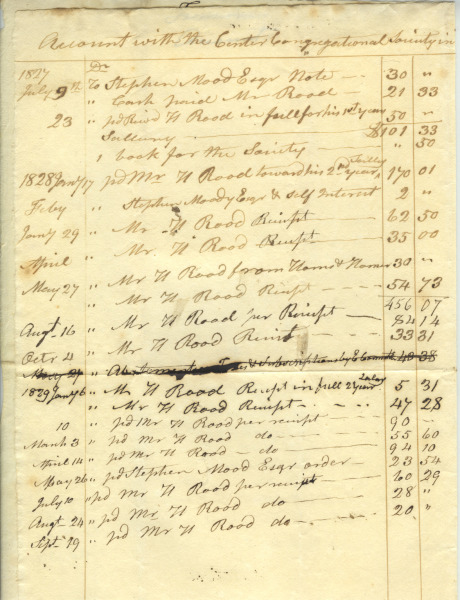 Account with the Center Congregational Society in
1827 Dr
July 9th To Stephen Mood Esqr Note — 30 "
" Cash paid Mr Rood — 21 33
23 " pd Revd H Rood in full for his 1st year 50 "
Sallery $101 33
1 book for the Society — " 50
Sallery
1828 Jany 17 pd Mr H Rood toward his 2nd year, 170 01
Feby " Stephen Moody Esqr & Self Interest 2 "
Jany 29 " Mr H Rood Receipt — 62 50
April " Mr H Rood Receipt 35 00
" Mr H Rood from Home & Homer 30 "
May 27 " Mr H Rood Recipt — 54 73
456 07
Augt 16 " Mr H Rood per Receipt — 84 14
Octr 4 " Mr H Rood Receipt 33 31
& Subscriptions by E 40 38
1829 Jany 6 " Mr H Rood Receipt in full 2 year Salary 5 31
" Mr H Rood Receipt - - - 47 28
10 " pd Mr H Rood per receipt 90 —
March 3 " pd Mr H Rood do — 55 60
April 14 " pd Mr H Rood — do — 94 10
May 26 " pd Stephen Mood Esqr order — 23 54
July 10 " pd Mr H Rood per receipt — 60 29
Augt 24 " pd Mr H Rood do 28 "
Sept 19 " pd Mr H Rood do — 20 "